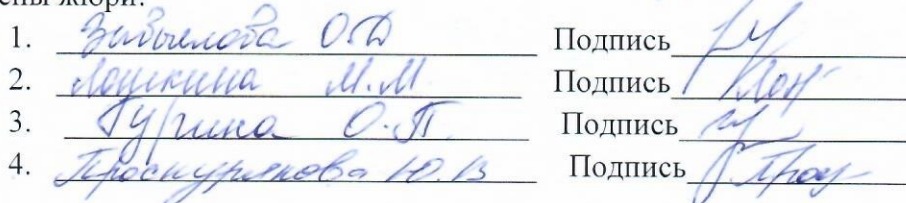 ены жюри:
1. О.Д Подпись
2. Лошкина М.М Подпись
3. Гургина О.П. Подпись
4. Проскурякова Ю.В Подпись